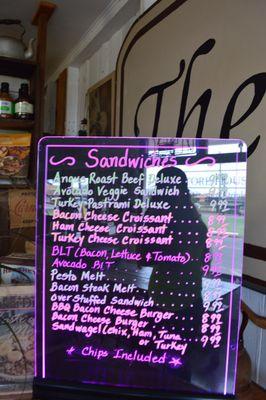 The
Sandwiches
Angus Roast Beef Deluxe 9.92
Avocado Veggie Sandwich 9.92
Turkey Pastrami Deluxe 9.92
Bacon Cheese Croissant 8.92
Ham Cheese Croissant 8.92
Turkey Cheese Croissant 8.92
BLT (Bacon, Lettuce & Tomato) 8.92
Avocado BLT 9.92
Pesto Melt 8.92
Bacon Steak Melt 9.92
Over Stuffed Sandwich 9.92
BBQ Bacon Cheese Burger 9.92
Bacon Cheese Burger 8.92
Sandwagel (Chix, Ham, Tuna
or Turkey 9.92
Chips Included